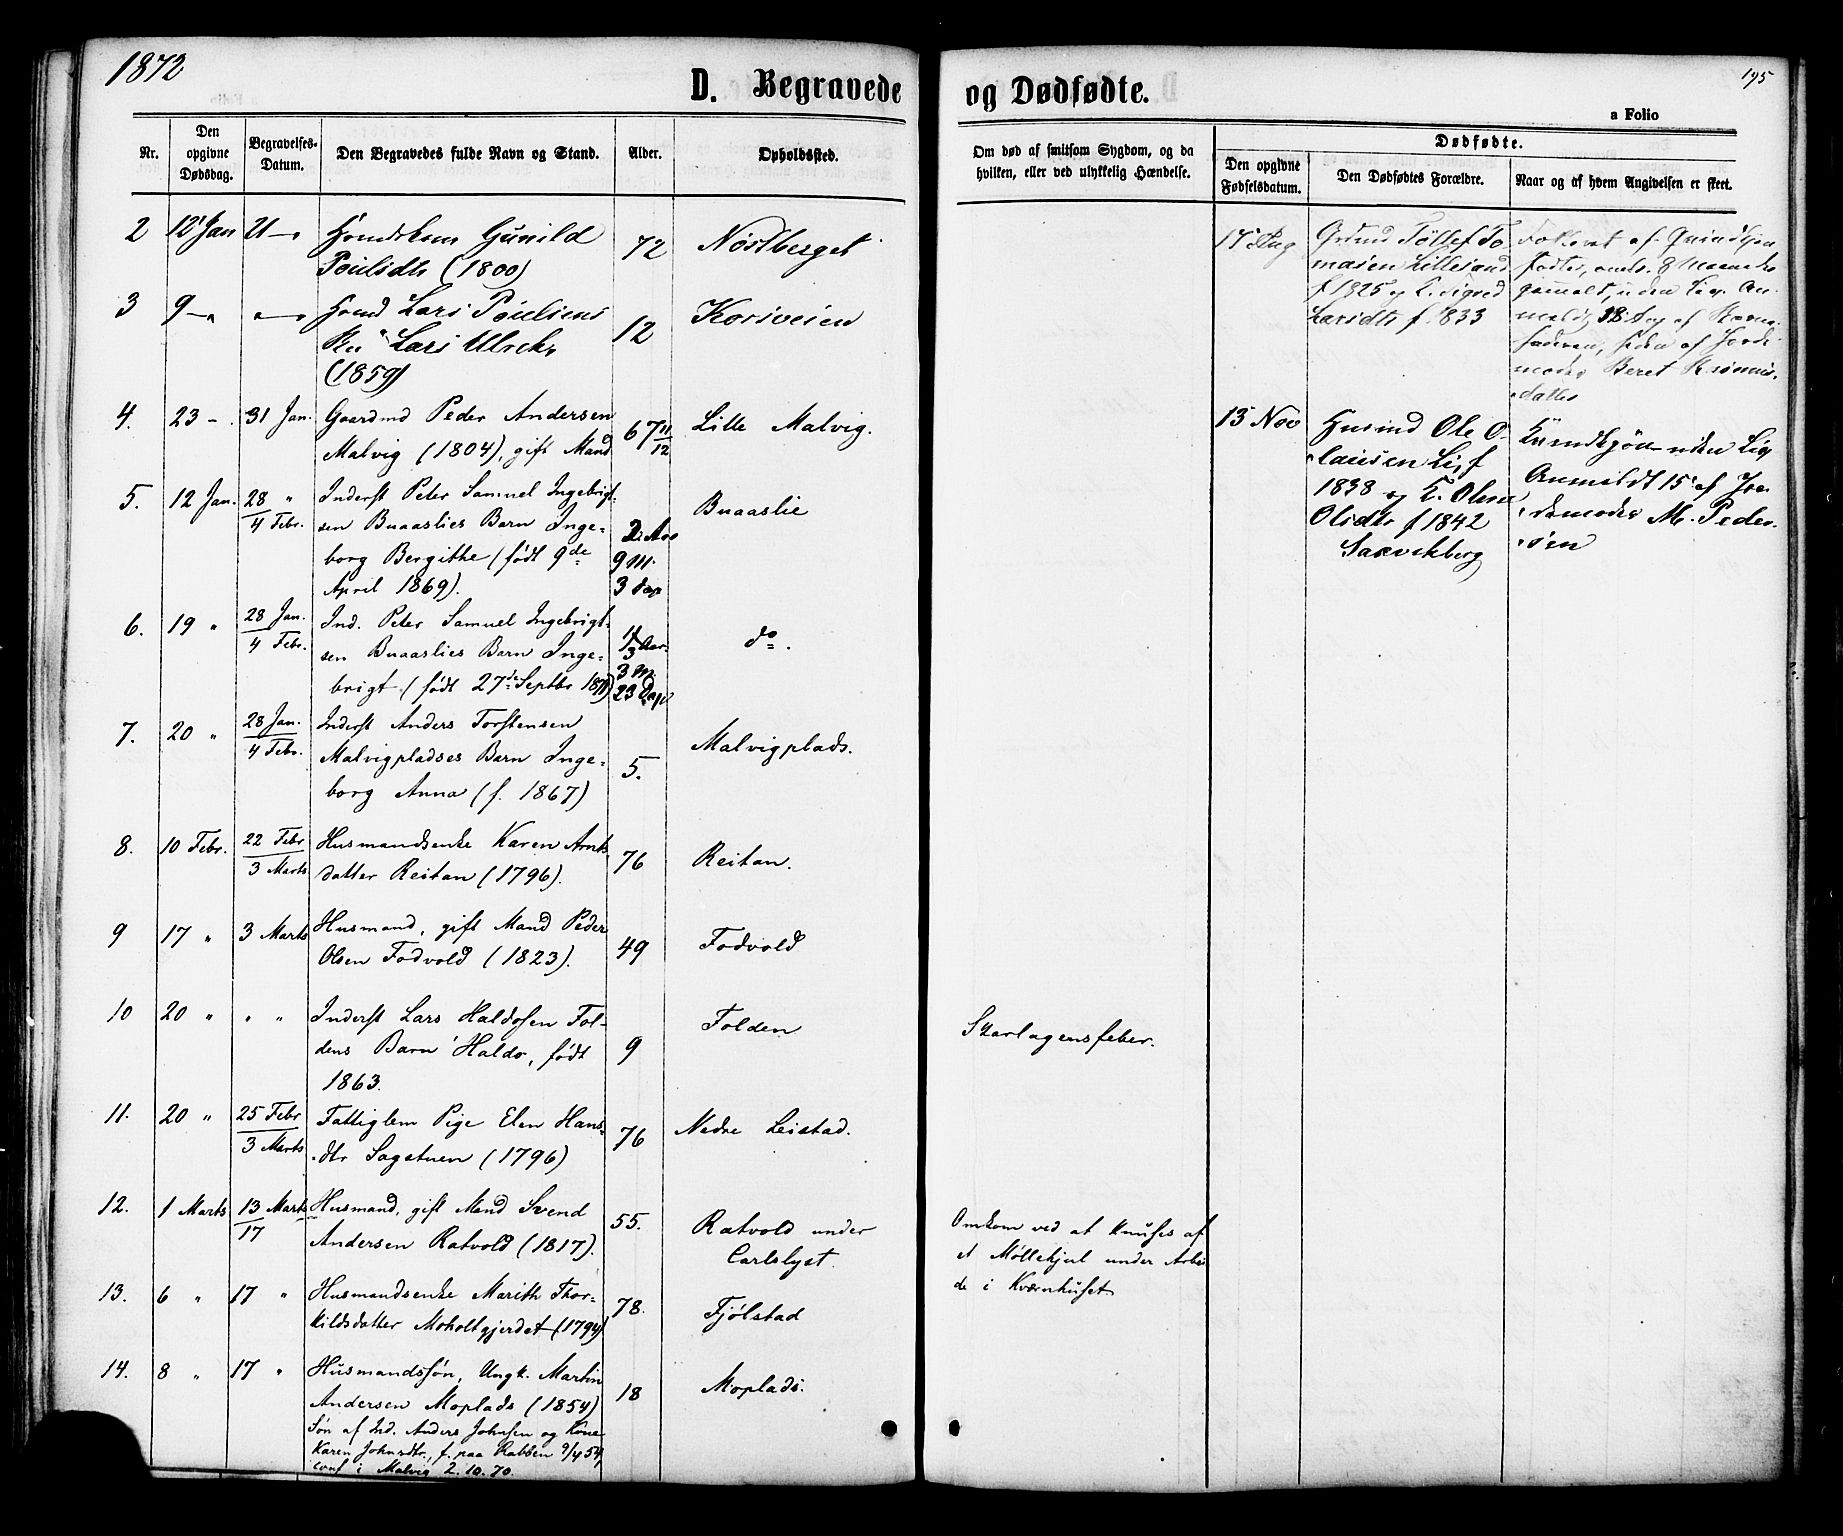 1872
D. Begravede
Nr.
Den opgivne Dødsdag.
Begravelses-Datum.
Den Begravedes fulde Navn og Stand.
Alder.
Opholdssted.
2 12 Jan 21
Gunild
72 Nøstberget
(1800)
3 9
Lars
12 Korsveien
Lars Ulrik
(1859)
4. 23 - 31 Jan. Gaardmd Peder Andersen
67 11/12 Lille Malvig.
Malvig (1804), gift Mand
5. 12 Jan. 28 " Inderst Peter Samuel Ingebrigt-
4 Febr. sen Buaaslies Barn Inge-
Buaaslie
2 Aar
borg Bergithe (født 9de
9 M.
April 1869).
3 Dage
6. 19 " 28 Jan. Ind. Peter Samuel Ingebrigt-
4 Febr. sen Buaaslies Barn Inge-
do.
3 M.
brigt (født 27de Septbr
23 Dage
7. 20 " 28 Jan. Inderst Anders Torstensen
4 Febr. Malvigpladses Barn Inge-
5. Malvigplads.
borg Anna (f. 1867)
8. 10 Febr. 22 Febr Husmandsenke Karen Arnts-
3 Marts datter Reitan (1796).
76 Reitan.
9 17 " 3 Marts Husmand, gift Mand Peder
Olsen Fodvold (1823).
49 Fodvold
10 20 " " " Inderst Lars Haldosen Fol-
dens Barn Haldo, født
9 Folden
1863.
11. 20 " 25 Febr Fattiglem Pige Elen Hans-
3 Marts dtr Sagstuen (1796)
76 Nedre Leistad.
12. 1 Marts 13 Marts Husmand, gift Mand Svend
17 Andersen Ratvold (1817).
55. Ratvold under
Carlslyst.
13. 6 " 17 " Husmandsenke Marith Thor-
kildsdatter Moholtgjerdet (1794)
78. Fjølstad
14. 8 " 17 " Husmandssøn, Ungk. Martin
Andersen Moplads (1854)
18 Moplads.
Søn af Ind. Anders Johnsen og Kone
Karen Johnsdtr., f. paa Rabben 9/4 54,
conf i Malvig 2.10.70.
195
og Dødfødte.
a Folio
Om død af smitsom Sygdom, og da
hvilken, eller ved ulykkelig Hændelse.
Dødfødte.
Den opgivne
Fødselsdatum.
Den Dødfødtes Forældre.
Naar og af hvem Angivelsen er skeet.
17 Aug
Lillesand
f 1825
f. 1833
uden
af
Beret
13 Nov Husmd Ole O-
lausen
f
1838 og K.
Olsdtr f 1842
Saxvikberg
Kvindkjøn uden Lig
Anmeldt 15' af Jor-
demoder M. Peder-
sen
Skarlagensfeber.
Omkom ved at knuses af
et Møllehjul under Arbei
de i Kværnhuset.